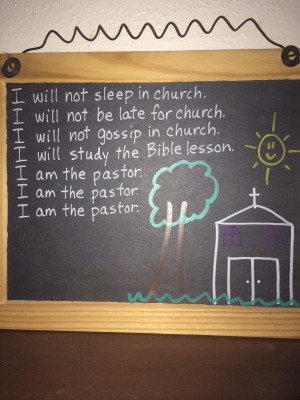 I will not sleep in church.
I will not be late for church.
I will not gossip in church.
I will study the Bible lesson.
I am the pastor.
I am the pastor.
I am the pastor.